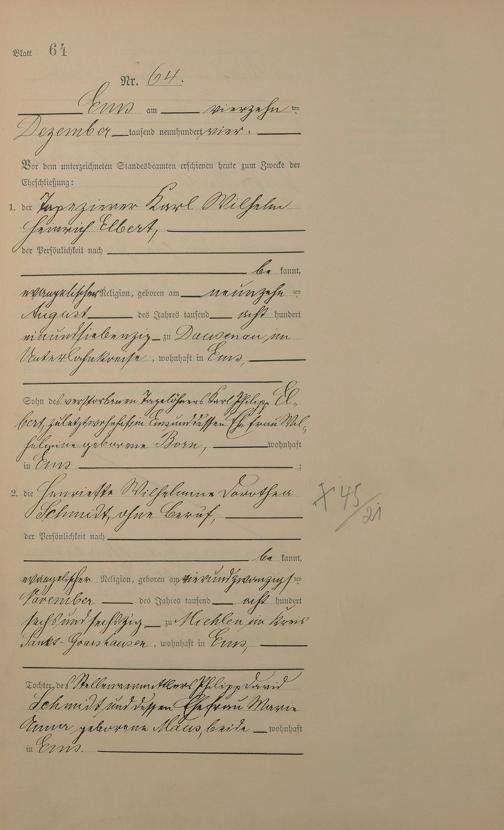 Blatt 64
Nr. 64.
Ems am vierzehnten
Dezember tausend neunhundert vier.
Vor dem unterzeichneten Standesbeamten erschienen heute zum Zwecke der
Eheschließung:
1. der Tapezierer Karl Wilhelm
Heinrich Elbert,
der Persönlichkeit nach
be kannt,
evangelischer Religion, geboren am neunzehnten
August des Jahres tausend acht hundert
einundsiebenzig zu Dausenau im
Unterlahnkreise, wohnhaft in Ems,
Sohn des verstorbenen Tagelöhners Karl Philipp El-
bert, zuletzt wohnhaft in Ems und dessen Ehefrau Wil-
helmine geborene Born, wohnhaft
in Ems ;
2. die Henriette Wilhelmine Dorothea
Schmidt, ohne Beruf,
der Persönlichkeit nach
be kannt,
evangelischer Religion, geboren am vierundzwanzigsten
November des Jahres tausend acht hundert
sechsundsechszig zu Miehlen im Kreis
Sankt-Goarshausen, wohnhaft in Ems,
Tochter des Stellenvermittlers Philipp David
Schmidt und dessen Ehefrau Marie
Anna geborene Maus, beide wohnhaft
in Ems.
45/21